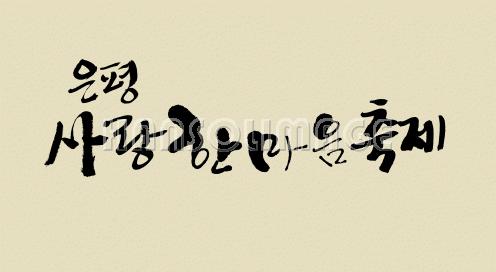 은평
사랑한마음축제